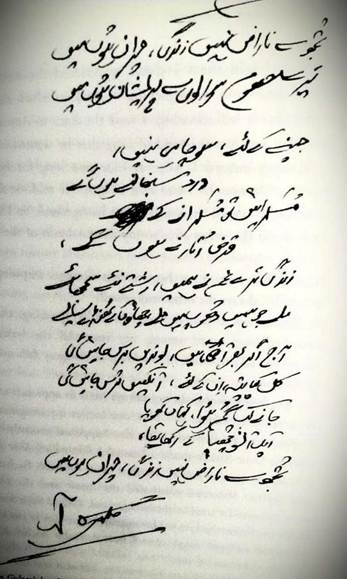 تجھ سے ناراض نہیں زندگی، حیران ہوں میں
تیرے معصوم سوالوں سے پریشان ہوں میں
جینے کے لئے، سوچا ہی نہیں،
درد سنبھالنے ہوں گے
مسکرائیں تو مسکرانے کے
قرض اتارنے ہوں گے،
زندگی تیرے غم نے ہمیں، رشتے نئے سمجھائے
ملے جو ہمیں دھوپ میں ملے چھاؤں کے ٹھنڈے سائے
آج اگر بھر آئی ہیں، بوندیں برس جائیں گی
کل کیا پتہ، ان کے لئے، آنکھیں ترس جائیں گی
جانے کب گم ہوا، کہاں کھویا
اک آنسو چھپا کے رکھا تھا،
تجھ سے ناراض نہیں زندگی، حیران ہوں میں